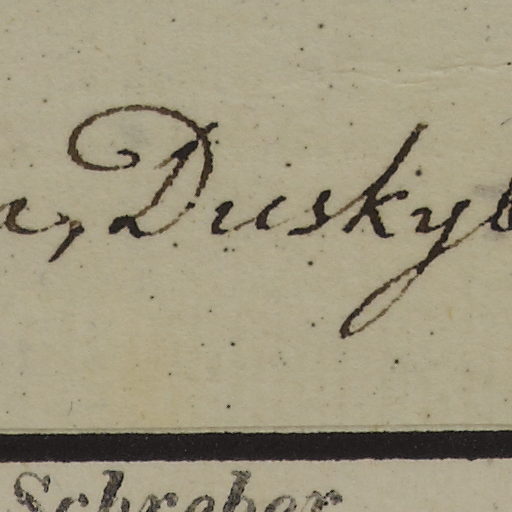 a, Duskyb
Schreber